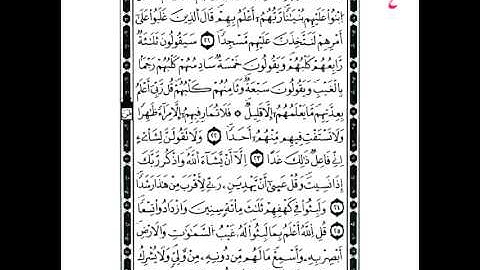 ابْنُوا۟ عَلَيْهِم بُنْيَـٰنًا ۖ رَّبُّهُمْ أَعْلَمُ بِهِمْ ۚ قَالَ ٱلَّذِينَ غَلَبُوا۟ عَلَىٰٓ
أَمْرِهِمْ لَنَتَّخِذَنَّ عَلَيْهِم مَّسْجِدًا ٢١ سَيَقُولُونَ ثَلَـٰثَةٌ
رَّابِعُهُمْ كَلْبُهُمْ وَيَقُولُونَ خَمْسَةٌ سَادِسُهُمْ كَلْبُهُمْ رَجْمًۢا
بِٱلْغَيْبِ ۖ وَيَقُولُونَ سَبْعَةٌ وَثَامِنُهُمْ كَلْبُهُمْ ۚ قُل رَّبِّىٓ أَعْلَمُ
بِعِدَّتِهِم مَّا يَعْلَمُهُمْ إِلَّا قَلِيلٌ ۗ فَلَا تُمَارِ فِيهِمْ إِلَّا مِرَآءً ظَـٰهِرًا
وَلَا تَسْتَفْتِ فِيهِم مِّنْهُمْ أَحَدًا ٢٢ وَلَا تَقُولَنَّ لِشَا۟ىْءٍ
إِنِّى فَاعِلٌ ذَٰلِكَ غَدًا ٢٣ إِلَّآ أَن يَشَآءَ ٱللَّهُ ۚ وَٱذْكُر رَّبَّكَ
إِذَا نَسِيتَ وَقُلْ عَسَىٰٓ أَن يَهْدِيَنِ رَبِّى لِأَقْرَبَ مِنْ هَـٰذَا رَشَدًا
٢٤ وَلَبِثُوا۟ فِى كَهْفِهِمْ ثَلَـٰثَ مِا۟ئَةٍ سِنِينَ وَٱزْدَادُوا۟ تِسْعًا
٢٥ قُلِ ٱللَّهُ أَعْلَمُ بِمَا لَبِثُوا۟ ۖ لَهُۥ غَيْبُ ٱلسَّمَـٰوَٰتِ وَٱلْأَرْضِ ۖ
أَبْصِرْ بِهِۦ وَأَسْمِعْ ۚ مَا لَهُم مِّن دُونِهِۦ مِن وَلِىٍّ وَلَا يُشْرِكُ